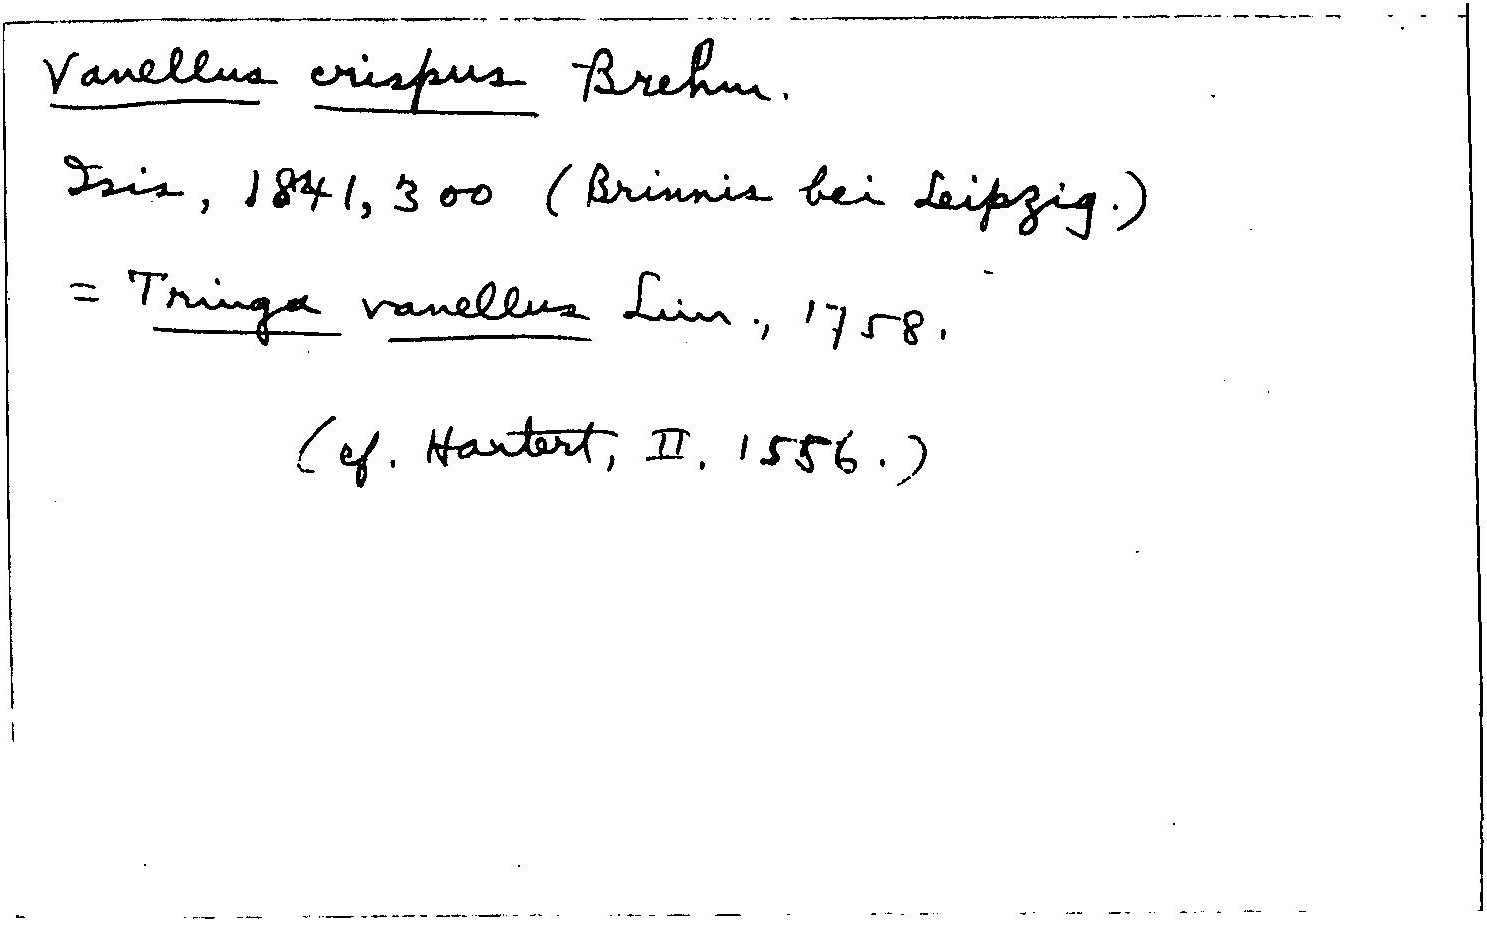 Vanellus crispus Brehm.
Isis, 1841, 300 (Brinnis bei Leipzig.)
= Tringa vanellus Linn., 1758.
(cf. Hartert, II. 1556.)